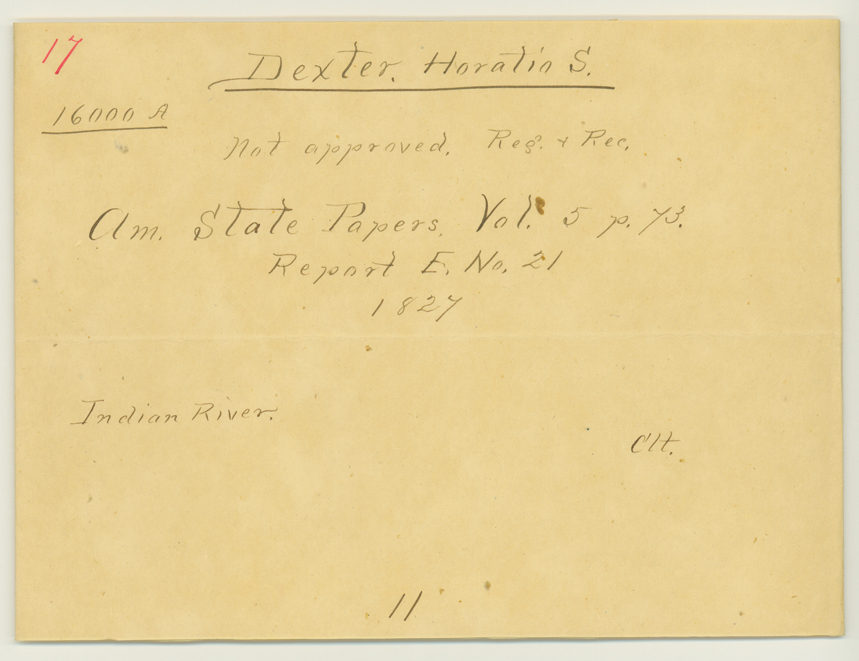 17
Dexter, Horatio S.
16000 A
Not approved. Reg. & Rec.
Am. State Papers. Vol. 5 p. 73.
Report E. No. 21
1827
Indian River.
Clt.
11